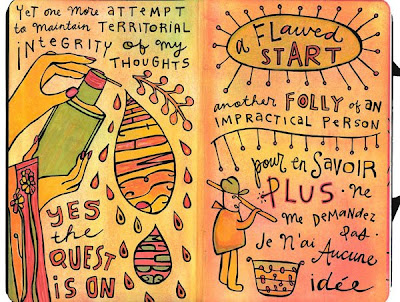 Yet one more ATTEMPT
to maintain TERRITORIAL
iNTEGRITY of my
THOUGHTS
YES
the
QUEST
iS ON
a FLAWED
START
another FOLLY of AN
IMPRACTICAL PERSON
pour en SAVOiR
PLUS. ne
me DEMANDEZ
pas.
Je N'ai AUCUNE
idée